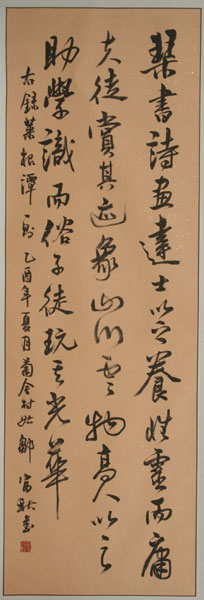 琴書詩畫達士以之養性靈而庸
夫徒賞其迹象山川雲物高人以之
助學識而俗子徒玩其光華
右録菜根潭一則乙酉年夏月